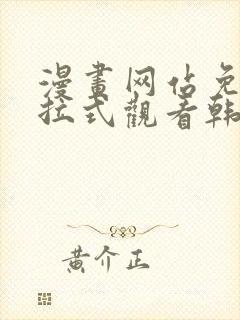 漫畫网佔免
拉式觀看韩
黄介正